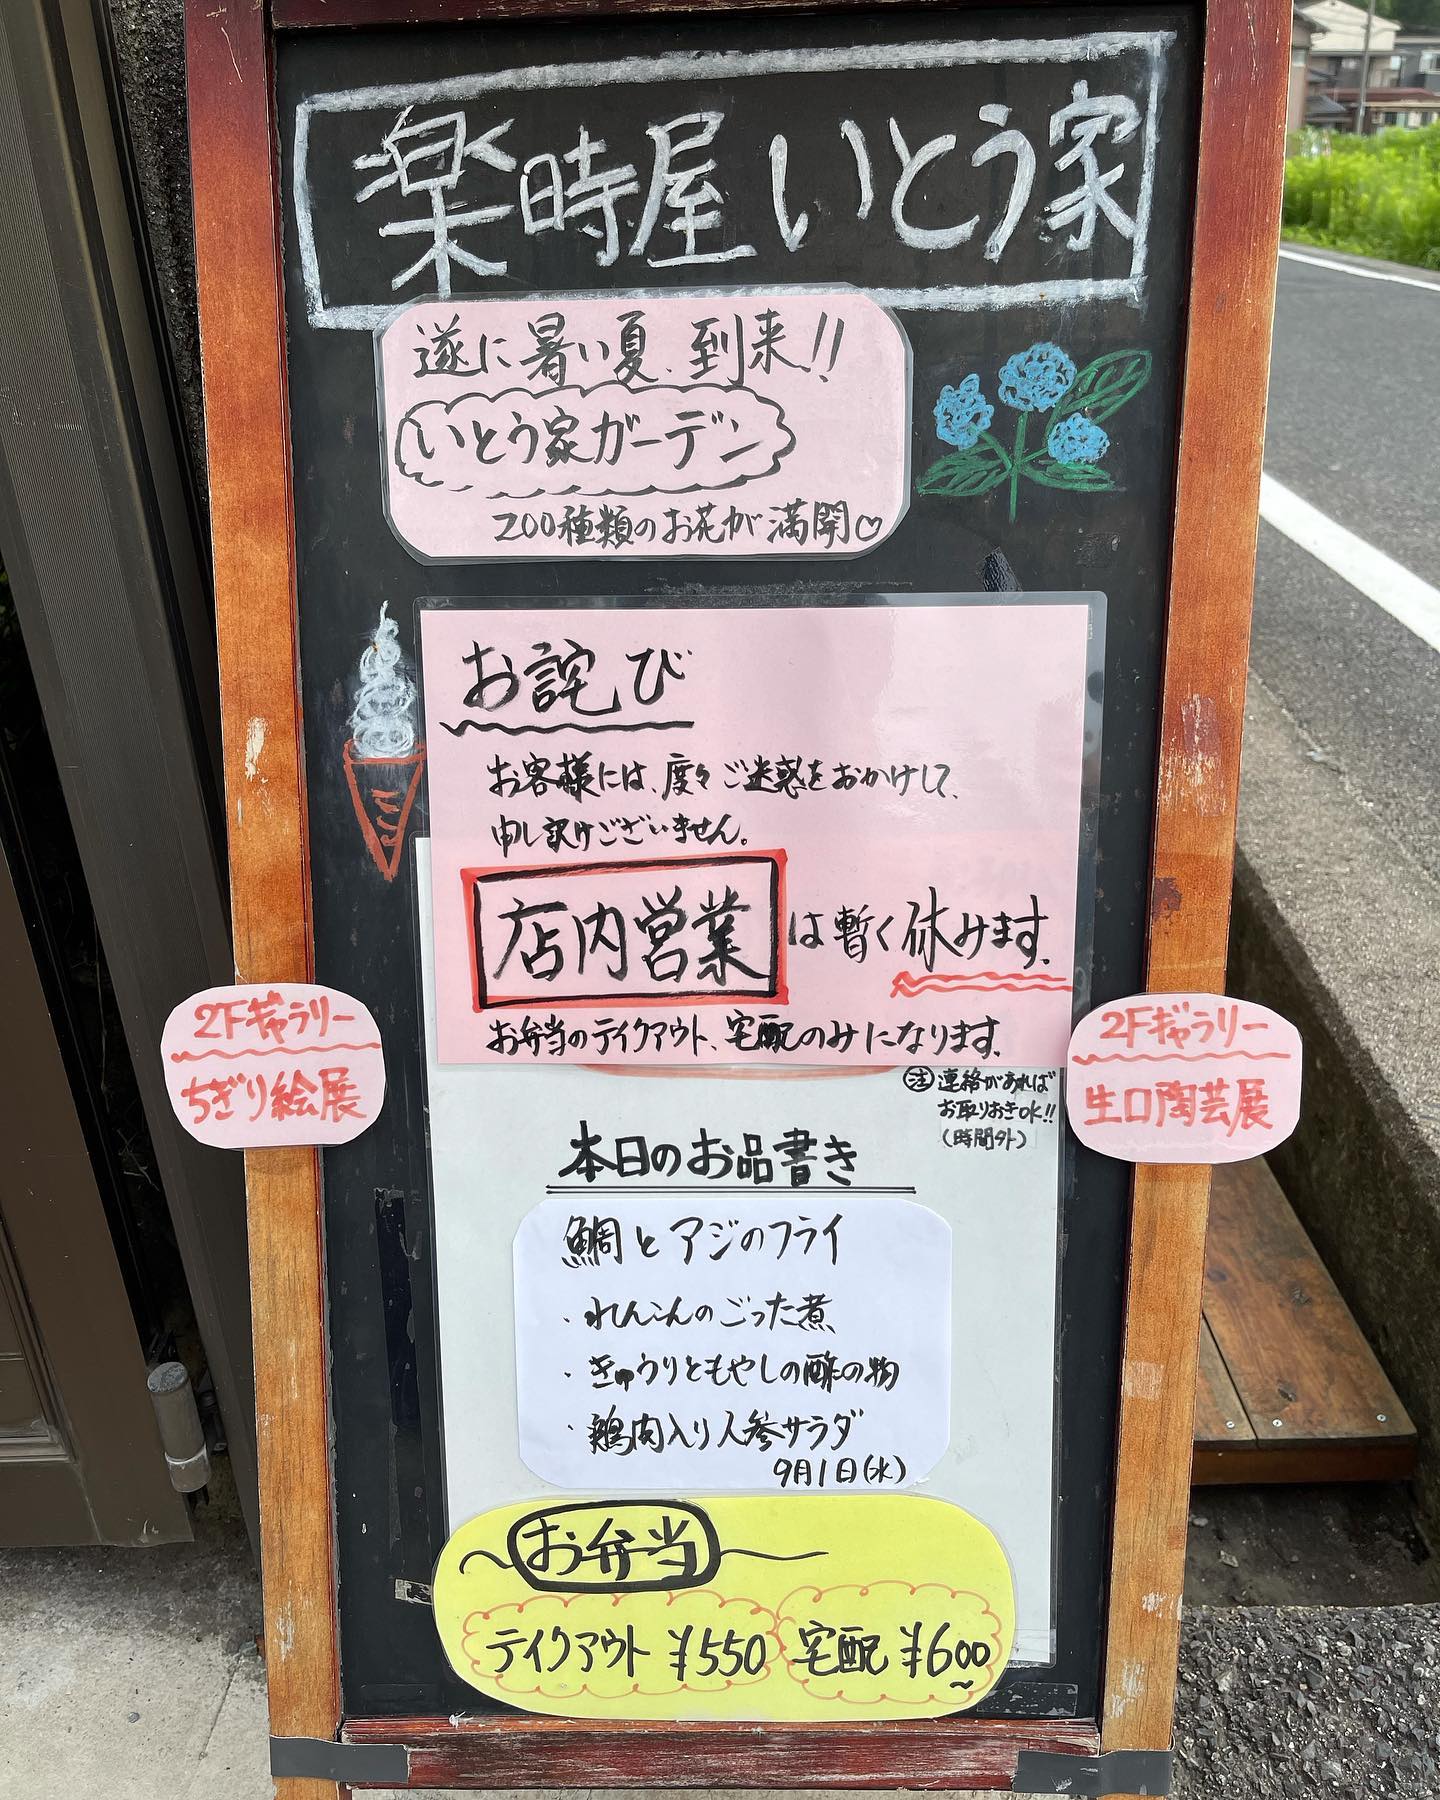 楽時屋 いとう家
遂に暑い夏、到来!!
いとう家ガーデン
200種類のお花が満開♡
お詫び
お客様には、度々ご迷惑をおかけして、
申し訳けございません。
店内営業は暫く休みます。
お弁当のテイクアウト、宅配のみになります。
注 連絡があれば
お取りおきOK!!
(時間外)
2Fギャラリー
ちぎり絵展
2Fギャラリー
生口陶芸展
本日のお品書き
鯛とアジのフライ
・れんこんのごった煮
・きゅうりともやしの酢の物
・鶏肉入り人参サラダ
9月1日(水)
お弁当
テイクアウト ¥550 宅配 ¥600〜